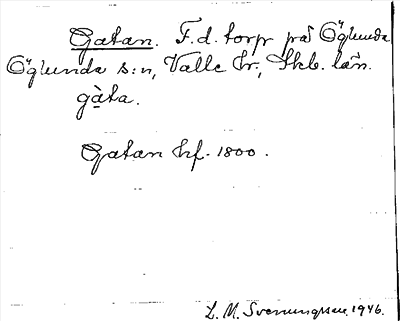 Gatan. F. d. torp på Öglunda
Öglunda s:n, Valle hr., Skb. län.
gàta.
Gatan hf. 1800.
L. M. Svenungsson 1946.